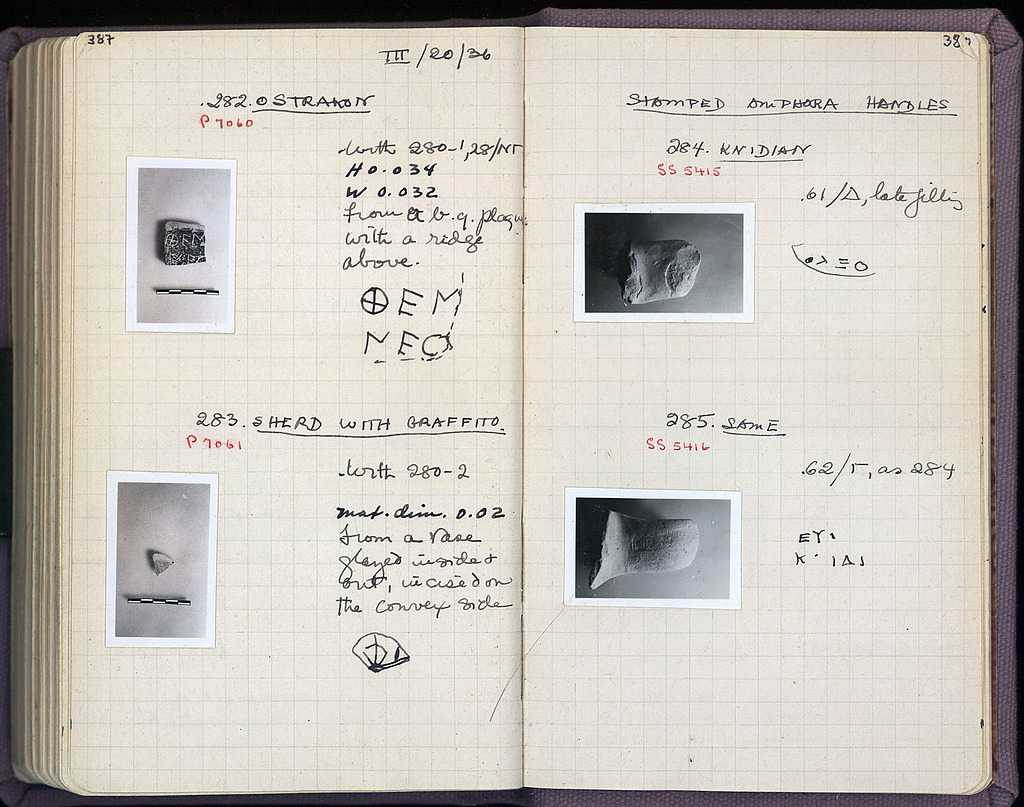 387
III/20/36
282. OSTRAKON
P 7060
With 280-1, 28/ΝΓ
H 0.034
W 0.032
from a b.g. plaque
with a ridge
above.
⊕ΕΜ
ΝΕΟ
283. SHERD WITH GRAFFITO.
P 7061
With 280-2
max. dim. 0.02
from a vase
glazed inside &
out, incised on
the convex side
387
STAMPED AMPHORA HANDLES
284. KNIDIAN
SS 5415
.61/Δ, late filling
285. SAME
SS 5416
.62/Γ, as 284
ΕΥ
Κ ΙΔΙ